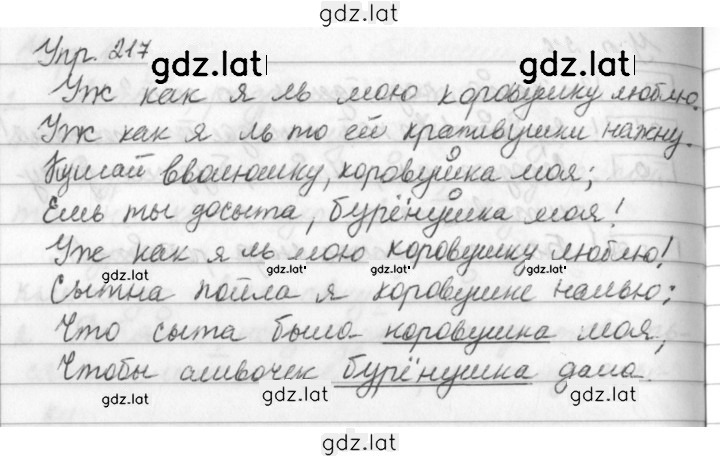 gdz.lat
Упр. 217
gdz.lat gdz.lat
Уж как я ль мою коровушку люблю.
Уж как я ль то ей крапивушки нажну.
Кушай вволюшку, коровушка моя;
Ешь ты досыта, бурёнушка моя!
Уж как я ль мою коровушку люблю!
gdz.lat gdz.lat gdz.lat
Сытна пойла я коровушке налью;
Что сыта была коровушка моя,
Чтобы сливочек бурёнушка дала.
gdz.lat gdz.lat gdz.lat
gdz.lat